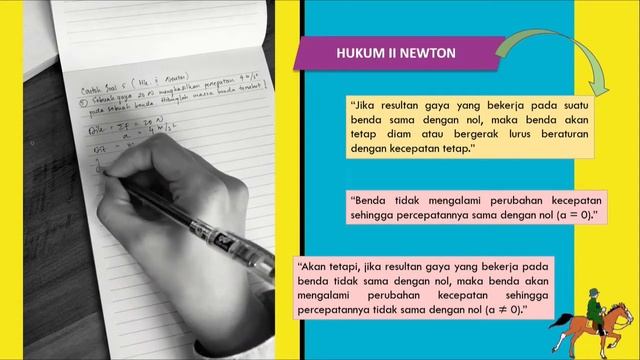 Contoh Soal 5 ( Hk. II Newton)
Sebuah gaya 20 N menghasilkan percepatan 4 m/s²
pada sebuah benda. Hitunglah massa benda tersebut!
Dik = ΣF = 20 N
a = 4 m/s²
Dit =
HUKUM II NEWTON
“Jika resultan gaya yang bekerja pada suatu
benda sama dengan nol, maka benda akan
tetap diam atau bergerak lurus beraturan
dengan kecepatan tetap.”
“Benda tidak mengalami perubahan kecepatan
sehingga percepatannya sama dengan nol (a = 0).”
“Akan tetapi, jika resultan gaya yang bekerja pada
benda tidak sama dengan nol, maka benda akan
mengalami perubahan kecepatan sehingga
percepatannya tidak sama dengan nol (a ≠ 0).”